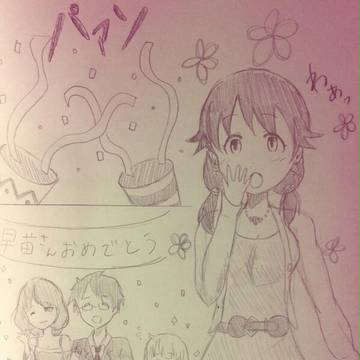 パァン
わぁっ
早苗さんおめでとう